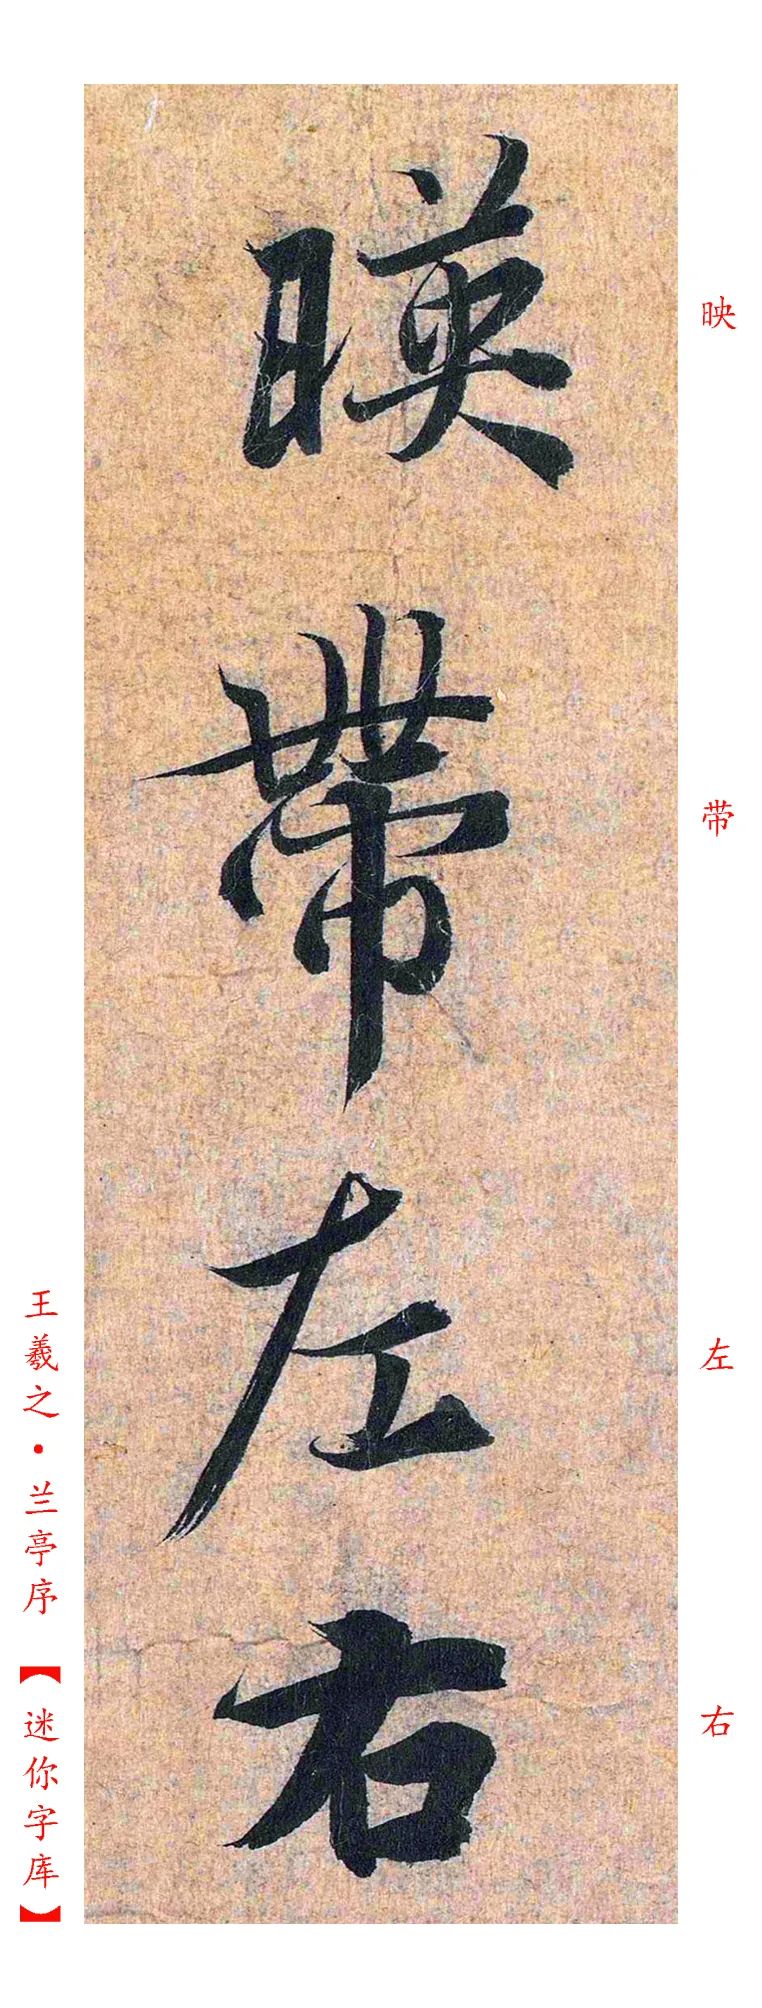 暎帶左右
映
带
左
右
王羲之·兰亭序【迷你字库】